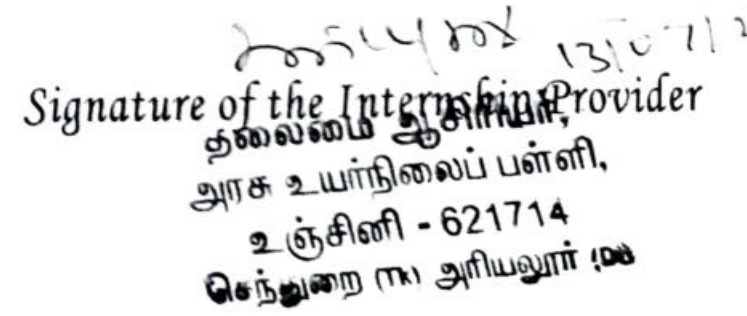 13/07/2
Signature of the Internship Provider
தலைமை ஆசிரியர்,
அரசு உயர்நிலைப் பள்ளி,
உஞ்சினி - 621714
செந்துறை (TK) அரியலூர்